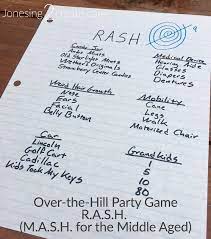 Jonesing2Create.com
RASH
9
Candy Jar
Mints
Old Starlight Mints
Werther's Originals
Strawberry Center Candies
Medical Device
Hearing Aide
Glasses
Diapers
Dentures
Weird Hair Growth
Nose
Ears
Facial
Belly Button
Mobility
Cane
Legs
Walk
Motorized Chair
Car
Lincoln
Golf Cart
Cadillac
Kids Took My Keys
Grandkids
1
5
10
80
Over-the-Hill Party Game
R.A.S.H.
(M.A.S.H. for the Middle Aged)